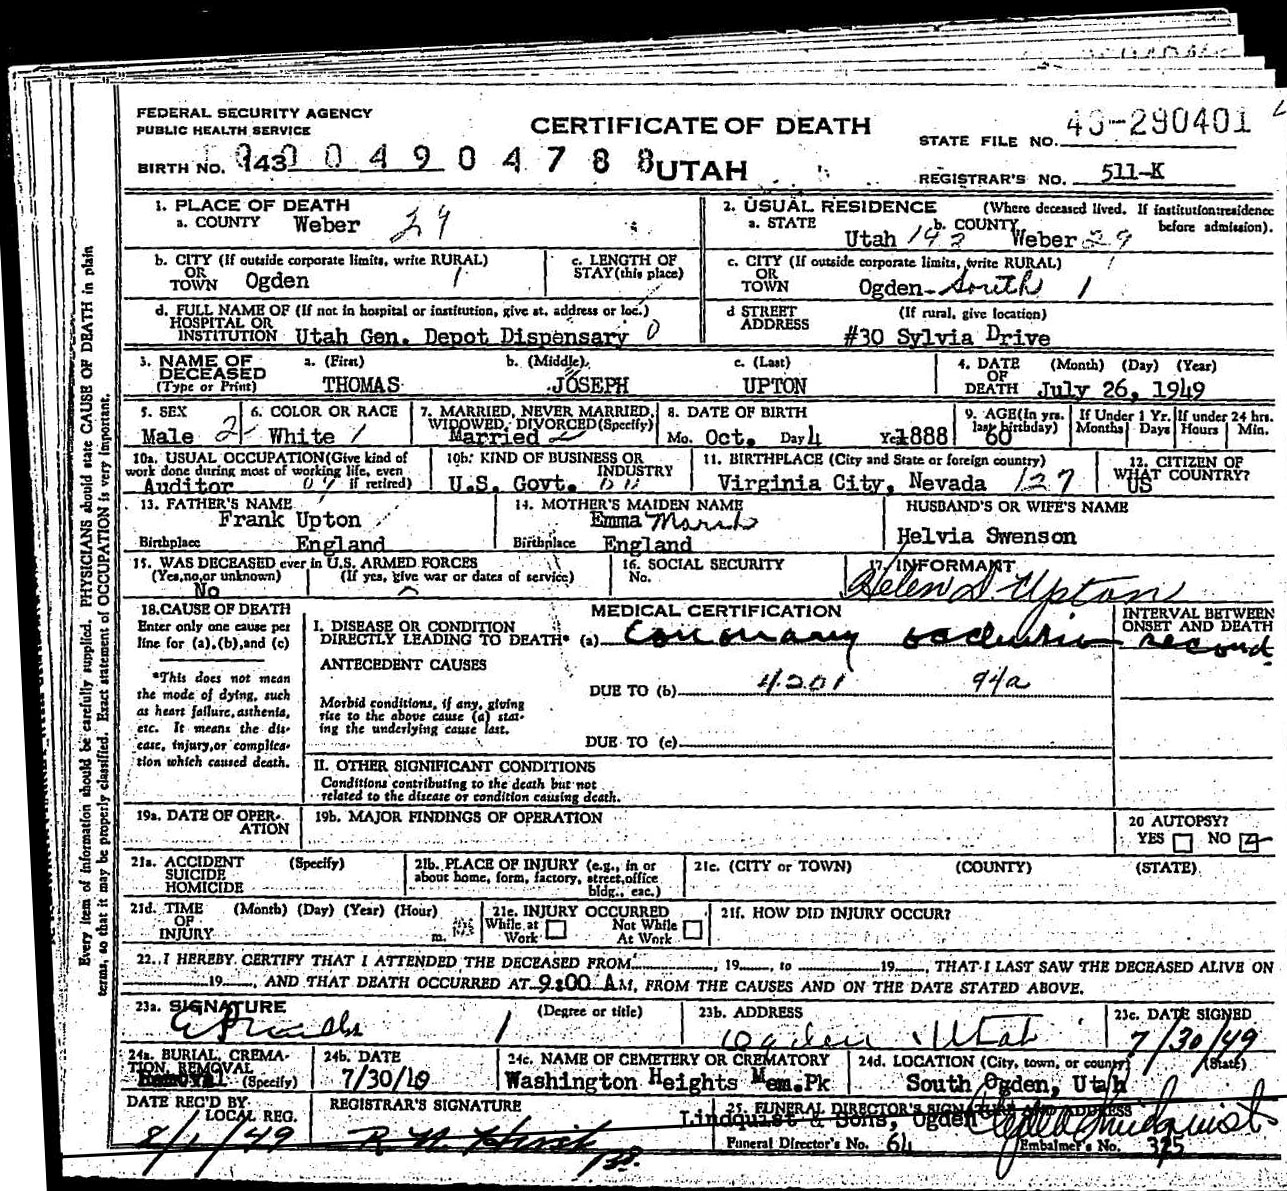 FEDERAL SECURITY AGENCY
PUBLIC HEALTH SERVICE
CERTIFICATE OF DEATH
STATE FILE NO. 49-290401
BIRTH NO. 143 0 0 4 9 0 4 7 8 8 UTAH
REGISTRAR'S NO. 511-K
1. PLACE OF DEATH
a. COUNTY Weber 29
2. USUAL RESIDENCE (Where deceased lived. If institution:residence before admission).
a. STATE Utah 192 b. COUNTY Weber 29
b. CITY (If outside corporate limits, write RURAL) OR TOWN Ogden 1
c. LENGTH OF STAY (this place)
c. CITY (If outside corporate limits, write RURAL) OR TOWN Ogden-South 1
d. FULL NAME OF (If not in hospital or institution, give st. address or loc.) HOSPITAL OR INSTITUTION Utah Gen. Depot Dispensary 0
d STREET ADDRESS (If rural, give location) #30 Sylvia Drive
3. NAME OF DECEASED (Type or Print)
a. (First) THOMAS
b. (Middle) JOSEPH
c. (Last) UPTON
4. DATE OF DEATH (Month) (Day) (Year) July 26, 1949
5. SEX Male 2
6. COLOR OR RACE White 1
7. MARRIED, NEVER MARRIED, WIDOWED, DIVORCED (Specify) Married 2
8. DATE OF BIRTH Mo. Oct. Day 4 Yr. 1888
9. AGE (In yrs. last birthday) 60
If Under 1 Yr. Months Days
If under 24 hrs. Hours Min.
10a. USUAL OCCUPATION (Give kind of work done during most of working life, even if retired) Auditor
10b. KIND OF BUSINESS OR INDUSTRY U.S. Govt.
11. BIRTHPLACE (City and State or foreign country) Virginia City, Nevada 127
12. CITIZEN OF WHAT COUNTRY? US
13. FATHER'S NAME Frank Upton
Birthplace England
14. MOTHER'S MAIDEN NAME Emma Marsh
Birthplace England
HUSBAND'S OR WIFE'S NAME
Helvia Swenson
15. WAS DECEASED ever in U.S. ARMED FORCES
(Yes, no, or unknown) No
(If yes, give war or dates of service)
16. SOCIAL SECURITY No.
17. INFORMANT
Helen S Upton
18. CAUSE OF DEATH
Enter only one cause per line for (a), (b), and (c)
*This does not mean the mode of dying, such as heart failure, asthenia, etc. It means the disease, injury, or complication which caused death.
MEDICAL CERTIFICATION
INTERVAL BETWEEN ONSET AND DEATH
I. DISEASE OR CONDITION DIRECTLY LEADING TO DEATH* (a) Coronary occlusion second
ANTECEDENT CAUSES
Morbid conditions, if any, giving rise to the above cause (a) stating the underlying cause last.
DUE TO (b) 4201 94a
DUE TO (c)
II. OTHER SIGNIFICANT CONDITIONS
Conditions contributing to the death but not related to the disease or condition causing death.
19a. DATE OF OPERATION
19b. MAJOR FINDINGS OF OPERATION
20 AUTOPSY?
YES NO
21a. ACCIDENT SUICIDE HOMICIDE (Specify)
21b. PLACE OF INJURY (e.g., in or about home, form, factory, street, office bldg., eac.)
21c. (CITY or TOWN) (COUNTY) (STATE)
21d. TIME OF INJURY (Month) (Day) (Year) (Hour) m.
21e. INJURY OCCURRED
While at Work Not While At Work
21f. HOW DID INJURY OCCUR?
22. I HEREBY CERTIFY THAT I ATTENDED THE DECEASED FROM , 19 , to 19 , THAT I LAST SAW THE DECEASED ALIVE ON
19 , AND THAT DEATH OCCURRED AT 9:00 AM, FROM THE CAUSES AND ON THE DATE STATED ABOVE.
23a. SIGNATURE (Degree or title)
23b. ADDRESS Ogden Utah
23c. DATE SIGNED 7/30/49
24a. BURIAL, CREMATION, REMOVAL (Specify) Removal
24b. DATE 7/30/49
24c. NAME OF CEMETERY OR CREMATORY Washington Heights Mem.Pk
24d. LOCATION (City, town, or county) (State) South Ogden, Utah
DATE REC'D BY LOCAL REG. 8/1/49
REGISTRAR'S SIGNATURE
25. FUNERAL DIRECTOR'S SIGNATURE AND ADDRESS
Lindquist & Sons, Ogden
Funeral Director's No. 64
Embalmer's No. 375
Every item of information should be carefully supplied. PHYSICIANS should state CAUSE OF DEATH in plain
terms, so that it may be properly classified. Exact statement of OCCUPATION is very important.